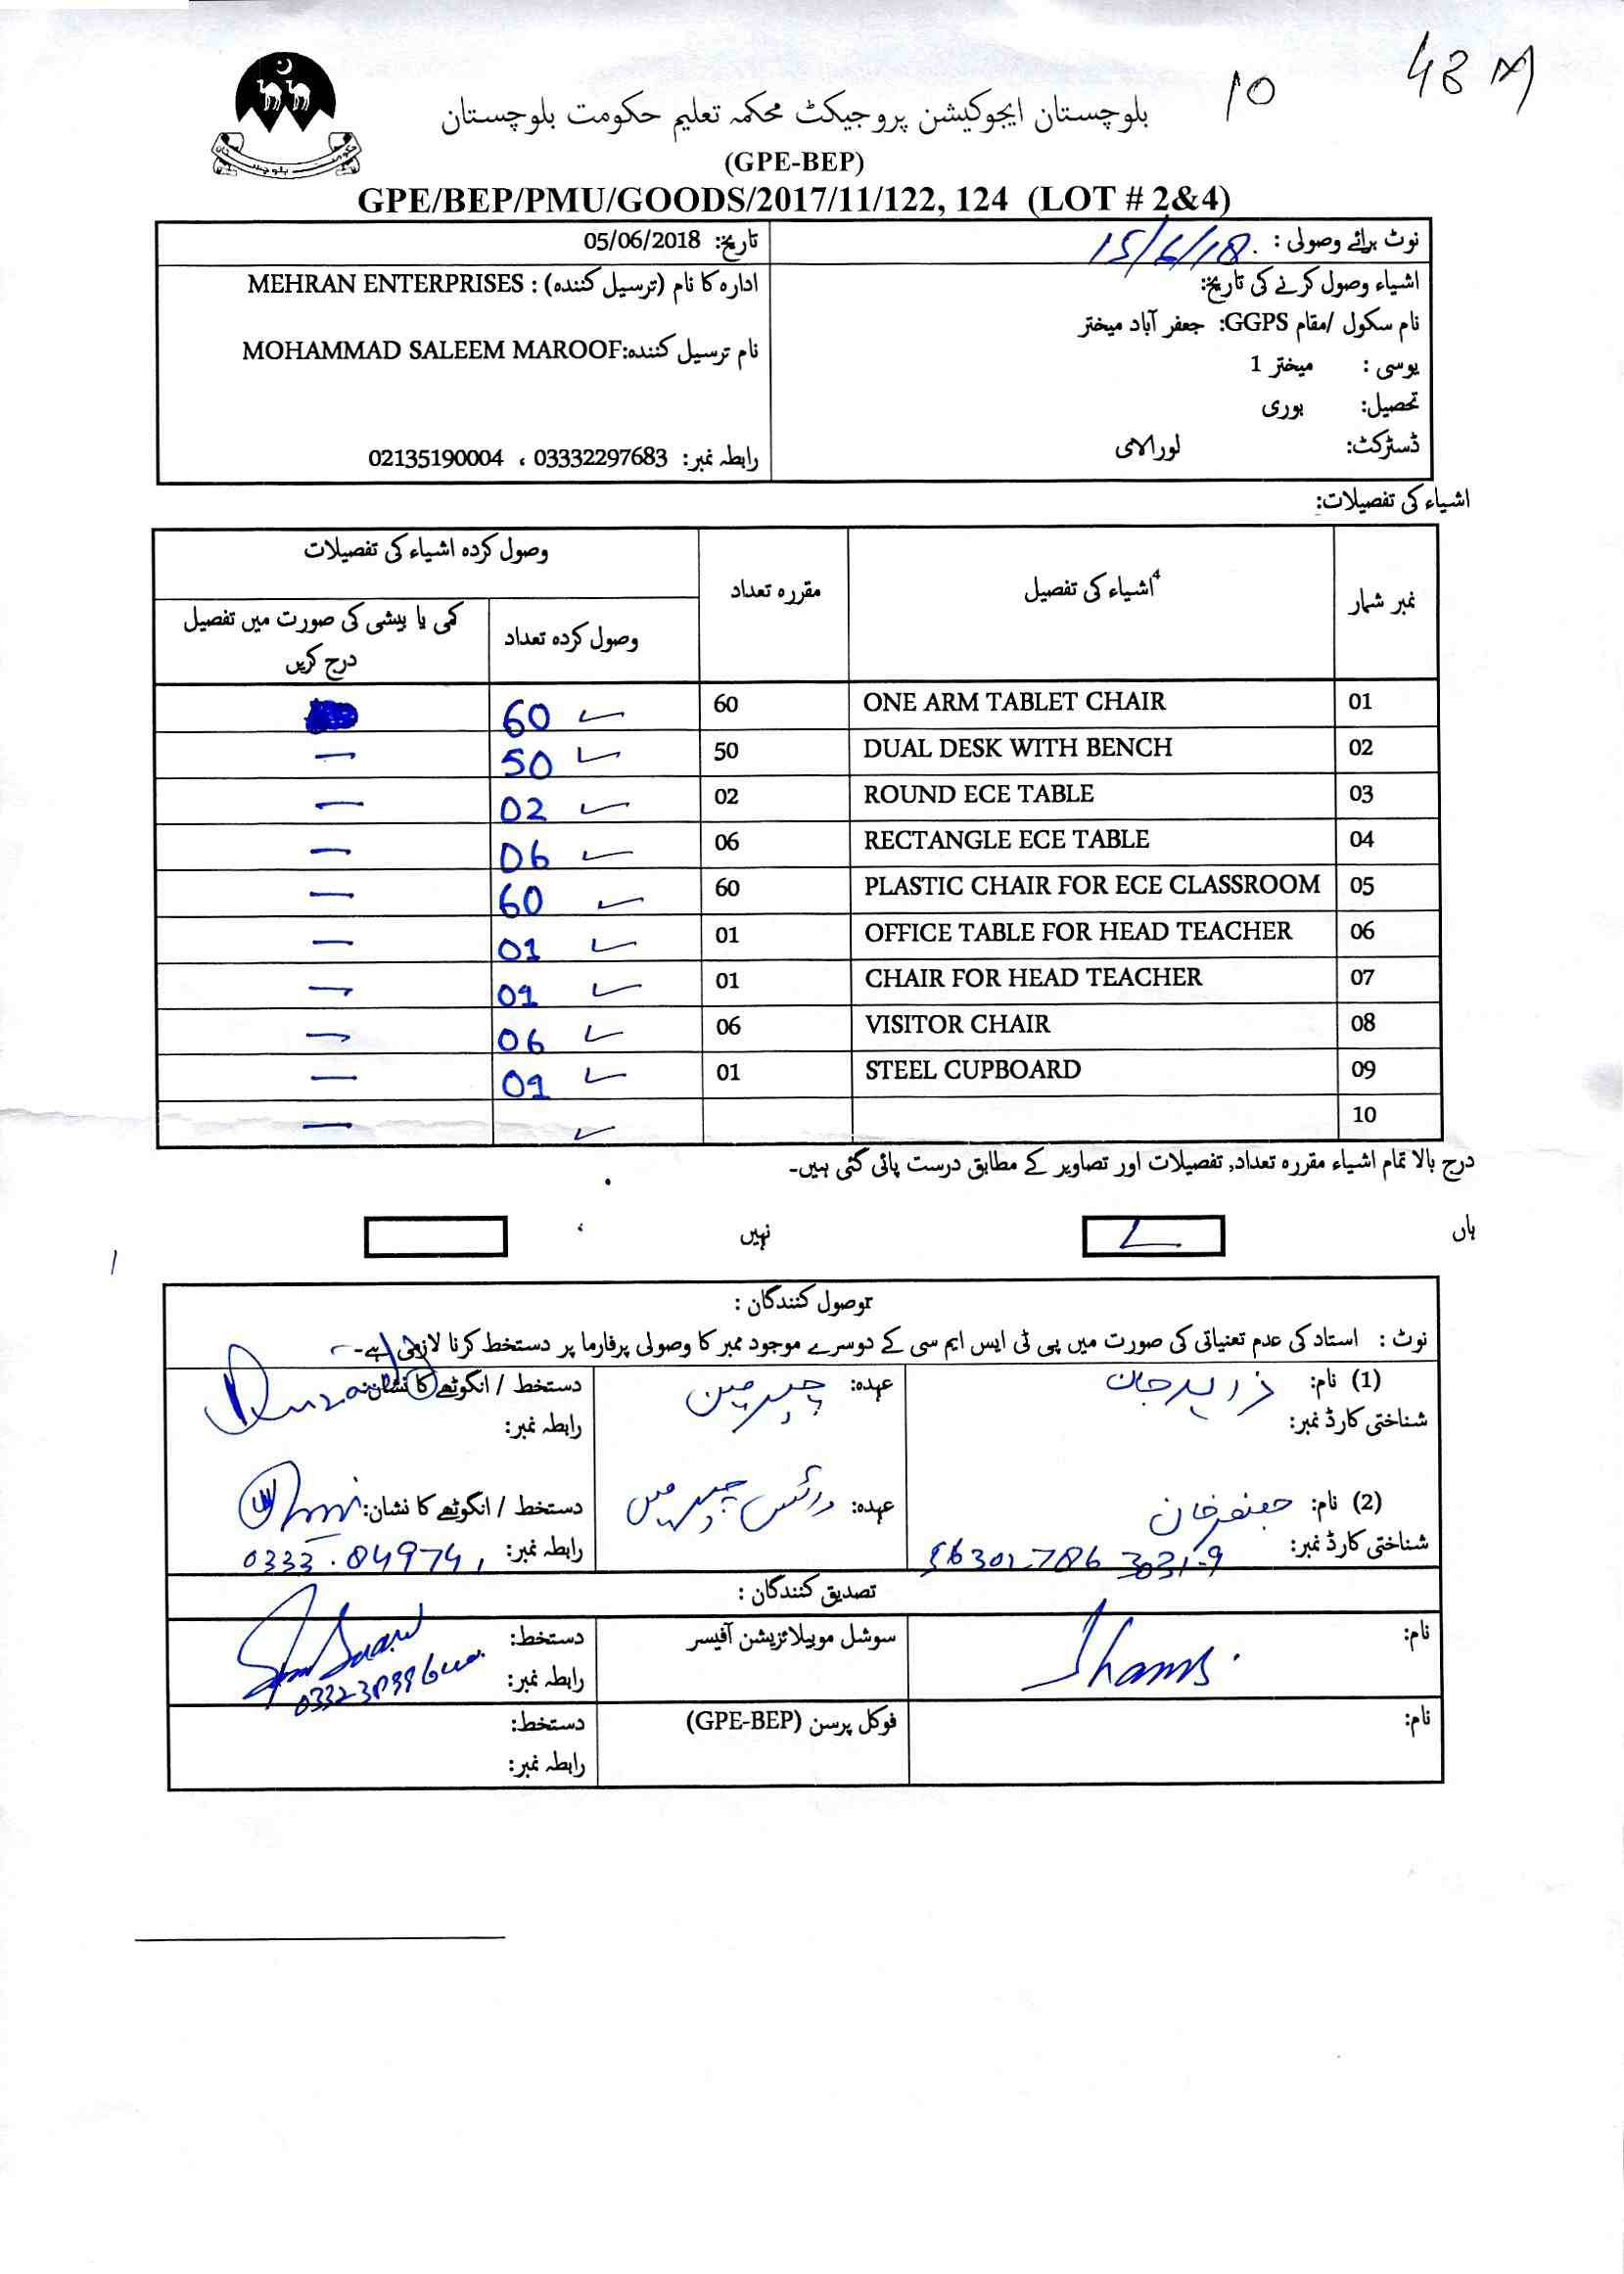 10
48
بلوچستان ایجوکیشن پروجیکٹ محکمہ تعلیم حکومت بلوچستان
(GPE-BEP)
GPE/BEP/PMU/GOODS/2017/11/122, 124 (LOT # 2&4)
نوٹ برائے وصولی : 15/6/18
تاریخ: 05/06/2018
اشیاء وصول کرنے کی تاریخ:
ادارہ کا نام (ترسیل کنندہ) : MEHRAN ENTERPRISES
نام سکول /مقام GGPS: جعفر آباد میختر
نام ترسیل کنندہ:MOHAMMAD SALEEM MAROOF
یوسی : میختر 1
تحصیل: بوری
ڈسٹرکٹ: لورالای
رابطہ نمبر: 03332297683 ، 02135190004
اشیاء کی تفصیلات:
نمبر شمار
4اشیاء کی تفصیل
مقررہ تعداد
وصول کردہ اشیاء کی تفصیلات
وصول کردہ تعداد
کمی یا بیشی کی صورت میں تفصیل درج کریں
01 ONE ARM TABLET CHAIR 60 60 ✓
02 DUAL DESK WITH BENCH 50 50 ✓ —
03 ROUND ECE TABLE 02 02 ✓ —
04 RECTANGLE ECE TABLE 06 06 ✓ —
05 PLASTIC CHAIR FOR ECE CLASSROOM 60 60 ✓ —
06 OFFICE TABLE FOR HEAD TEACHER 01 01 ✓ —
07 CHAIR FOR HEAD TEACHER 01 01 ✓ —
08 VISITOR CHAIR 06 06 ✓ —
09 STEEL CUPBOARD 01 01 ✓ —
10 ✓ —
درج بالا تمام اشیاء مقررہ تعداد, تفصیلات اور تصاویر کے مطابق درست پائی گئی ہیں۔
ہاں ✓ نہیں
وصول کنندگان :
نوٹ : استاد کی عدم تعنیاتی کی صورت میں پی ٹی ایس ایم سی کے دوسرے موجود ممبر کا وصولی پرفارما پر دستخط کرنا لازمی ہے۔
(1) نام: عہدہ: چیرمین دستخط / انگوٹھے کا نشان:
شناختی کارڈ نمبر: رابطہ نمبر:
(2) نام: جعفر خان عہدہ: وائس چیرمین دستخط / انگوٹھے کا نشان:
شناختی کارڈ نمبر: رابطہ نمبر:
تصدیق کنندگان :
نام: Shams. سوشل موبیلائزیشن آفیسر دستخط:
رابطہ نمبر:
نام: فوکل پرسن (GPE-BEP) دستخط:
رابطہ نمبر: